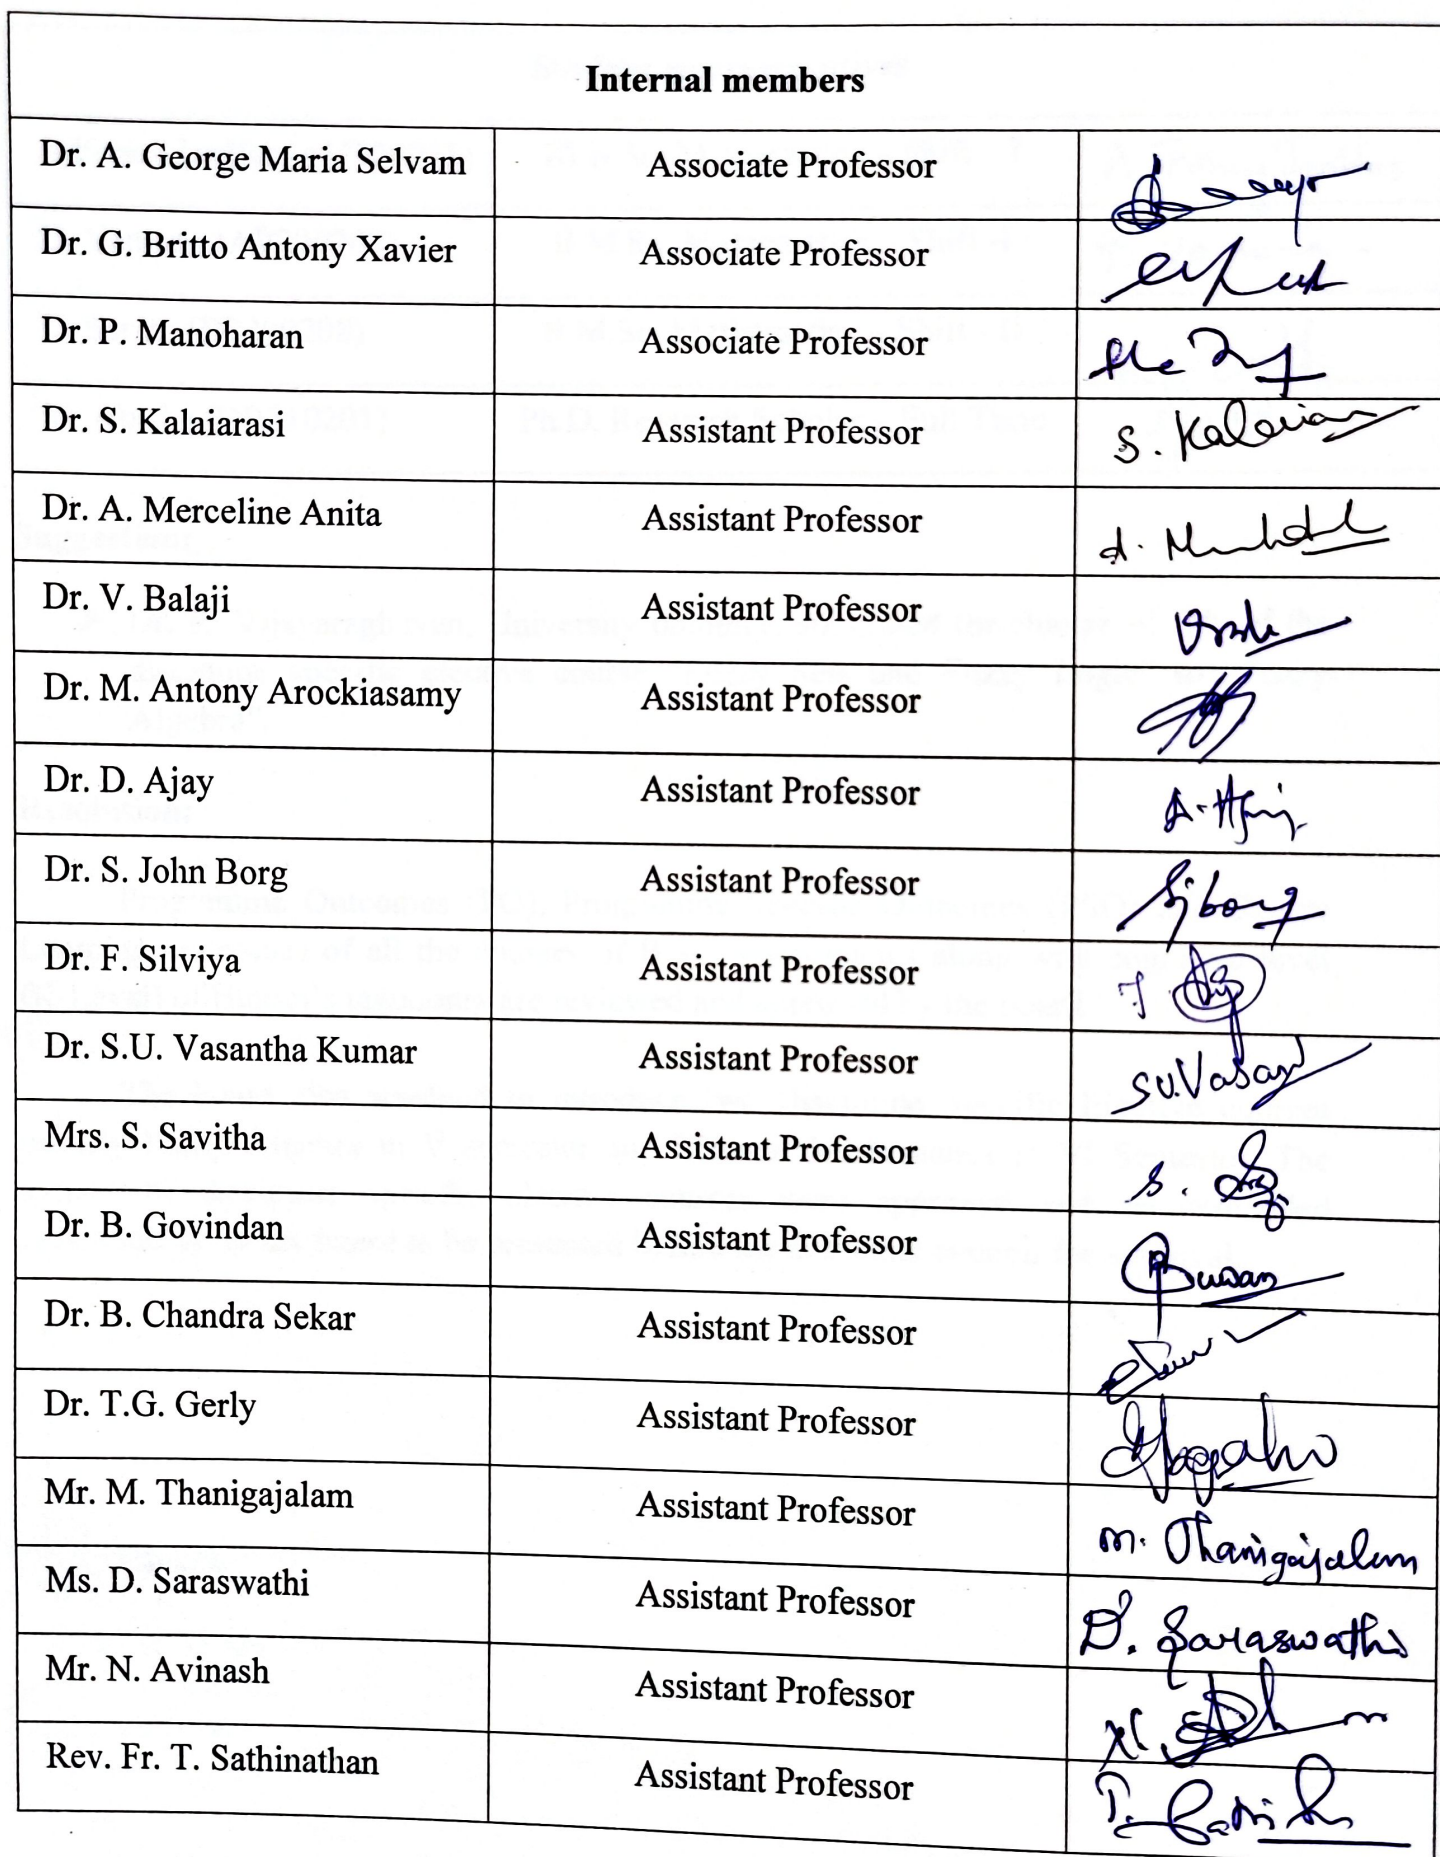 Internal members
Dr. A. George Maria Selvam Associate Professor
Dr. G. Britto Antony Xavier Associate Professor
Dr. P. Manoharan Associate Professor
Dr. S. Kalaiarasi Assistant Professor S. Kalaiaras
Dr. A. Merceline Anita Assistant Professor
Dr. V. Balaji Assistant Professor
Dr. M. Antony Arockiasamy Assistant Professor
Dr. D. Ajay Assistant Professor
Dr. S. John Borg Assistant Professor Sjborg
Dr. F. Silviya Assistant Professor
Dr. S.U. Vasantha Kumar Assistant Professor S.U.Vasant
Mrs. S. Savitha Assistant Professor S.
Dr. B. Govindan Assistant Professor
Dr. B. Chandra Sekar Assistant Professor
Dr. T.G. Gerly Assistant Professor
Mr. M. Thanigajalam Assistant Professor M. Thanigajalam
Ms. D. Saraswathi Assistant Professor D. Saraswathi
Mr. N. Avinash Assistant Professor N.
Rev. Fr. T. Sathinathan Assistant Professor T.